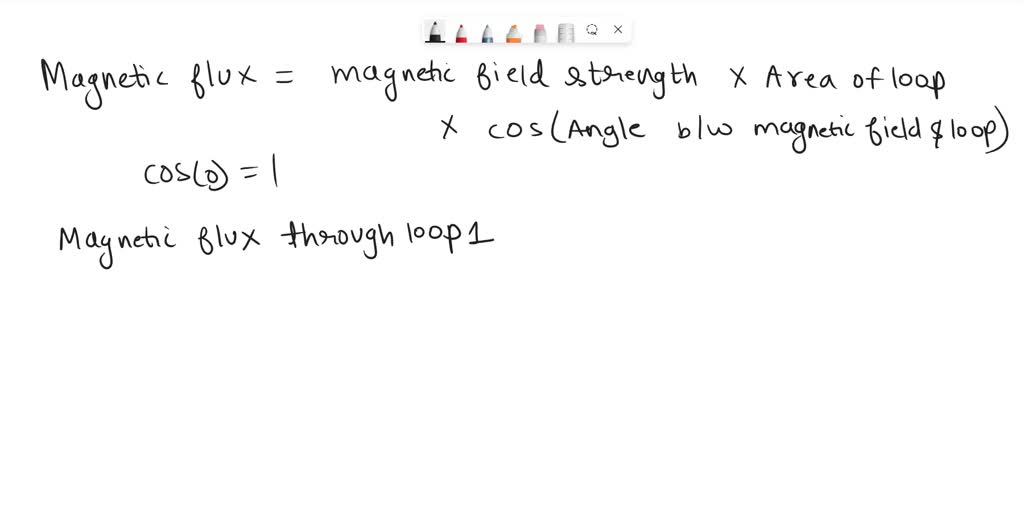 Magnetic flux = magnetic field strength X Area of loop
X cos(Angle b/w magnetic field & loop)
cos(0) = 1
Magnetic flux through loop 1